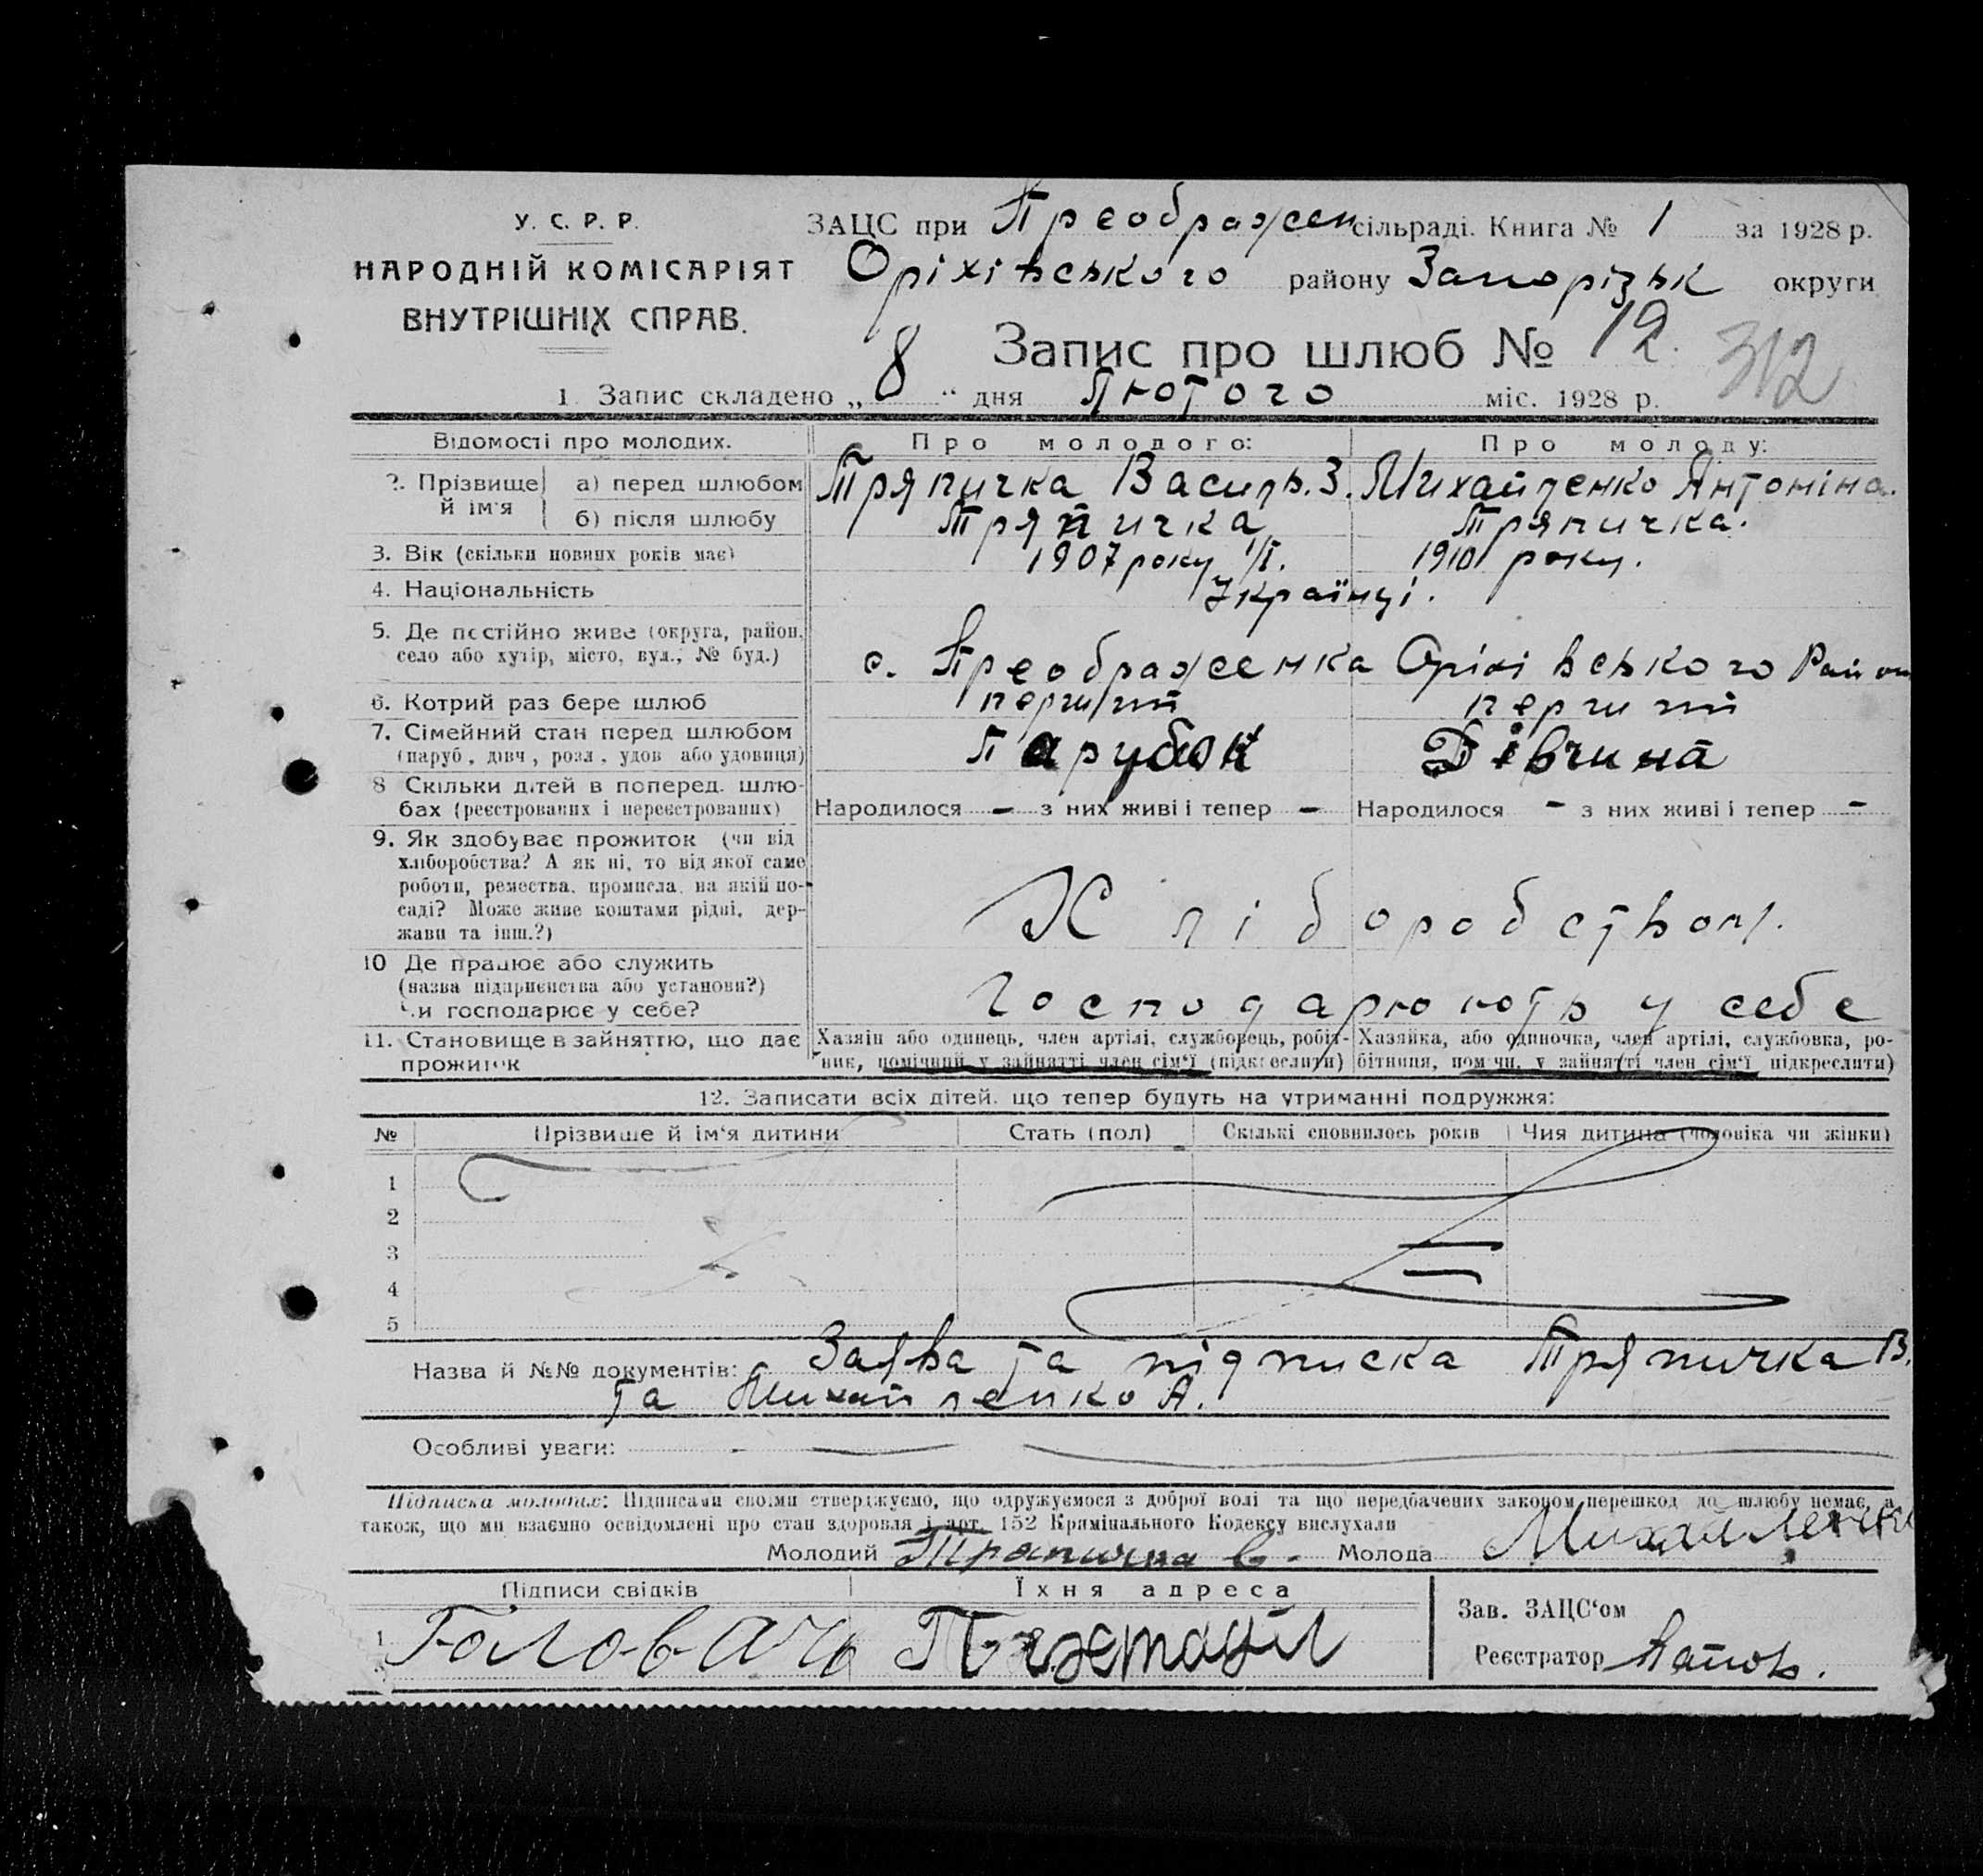 У. С. Р. Р.
НАРОДНІЙ КОМІСАРІЯТ
ВНУТРІШНІХ СПРАВ.
ЗАЦС при Преображен сільраді. Книга № 1 за 1928 р.
Оріхівського району Запорізьк округи
Запис про шлюб № 12.
312
1. Запис складено „ 8 “ дня Лютого міс. 1928 р.
Відомості про молодих. Про молодого: Про молоду:
2. Прізвище й ім'я а) перед шлюбом Тряпичка Василь. З. Михайленко Антоніна.
б) після шлюбу Тряпичка Тряпичка.
3. Вік (скільки повних років має) 1907 року 1/I. 1910 року.
4. Національність Українці.
5. Де постійно живе (округа, район,
село або хутір, місто, вул., № буд.) с. Преображенка Оріхівського Район
6. Котрий раз бере шлюб перший перший
7. Сімейний стан перед шлюбом Парубок Дівчина
(паруб, дівч, розл, удов або удовиця)
8 Скільки дітей в поперед. шлю-
бах (реєстрованих і нереєстрованих) Народилося – з них живі і тепер – Народилося – з них живі і тепер –
9. Як здобуває прожиток (чи від
хліборобства? А як ні, то від якої саме
роботи, ремества, промисла, на якій по-
саді? Може живе коштами рідні, дер-
жави та інш.?) Хліборобством.
10 Де працює або служить
(назва підприємства або установи?)
Чи господарює у себе? Господарюють у себе
11. Становище в зайняттю, що дає
прожиток
Хазяін або одинець, член артілі, службовець, робіт-
ник, помічний у зайнятті член сім'ї (підкреслити)
Хазяйка, або одиночка, член артілі, службовка, ро-
бітниця, поміч. у зайнятті член сім'ї підкреслити)
12. Записати всіх дітей, що тепер будуть на утриманні подружжя:
№ Прізвище й ім'я дитини Стать (пол) Скількі сповнилось років Чия дитина (чоловіка чи жінки)
1
2
3
4
5
Назва й №№ документів: Заява та підписка Тряпичка В.
та Михайленко А.
Особливі уваги:
Підписка молодих: Підписами своїми стверджуємо, що одружуємося з доброї волі та що передбачених законом перешкод до шлюбу немає, а
також, що ми взаємно освідомлені про стан здоровля і арт. 152 Кримінального Кодексу вислухали
Молодий Тряпичка В. Молода Михайленко
Підписи свідків Їхня адреса
1 Головач
Зав. ЗАЦС'ом
Реєстратор